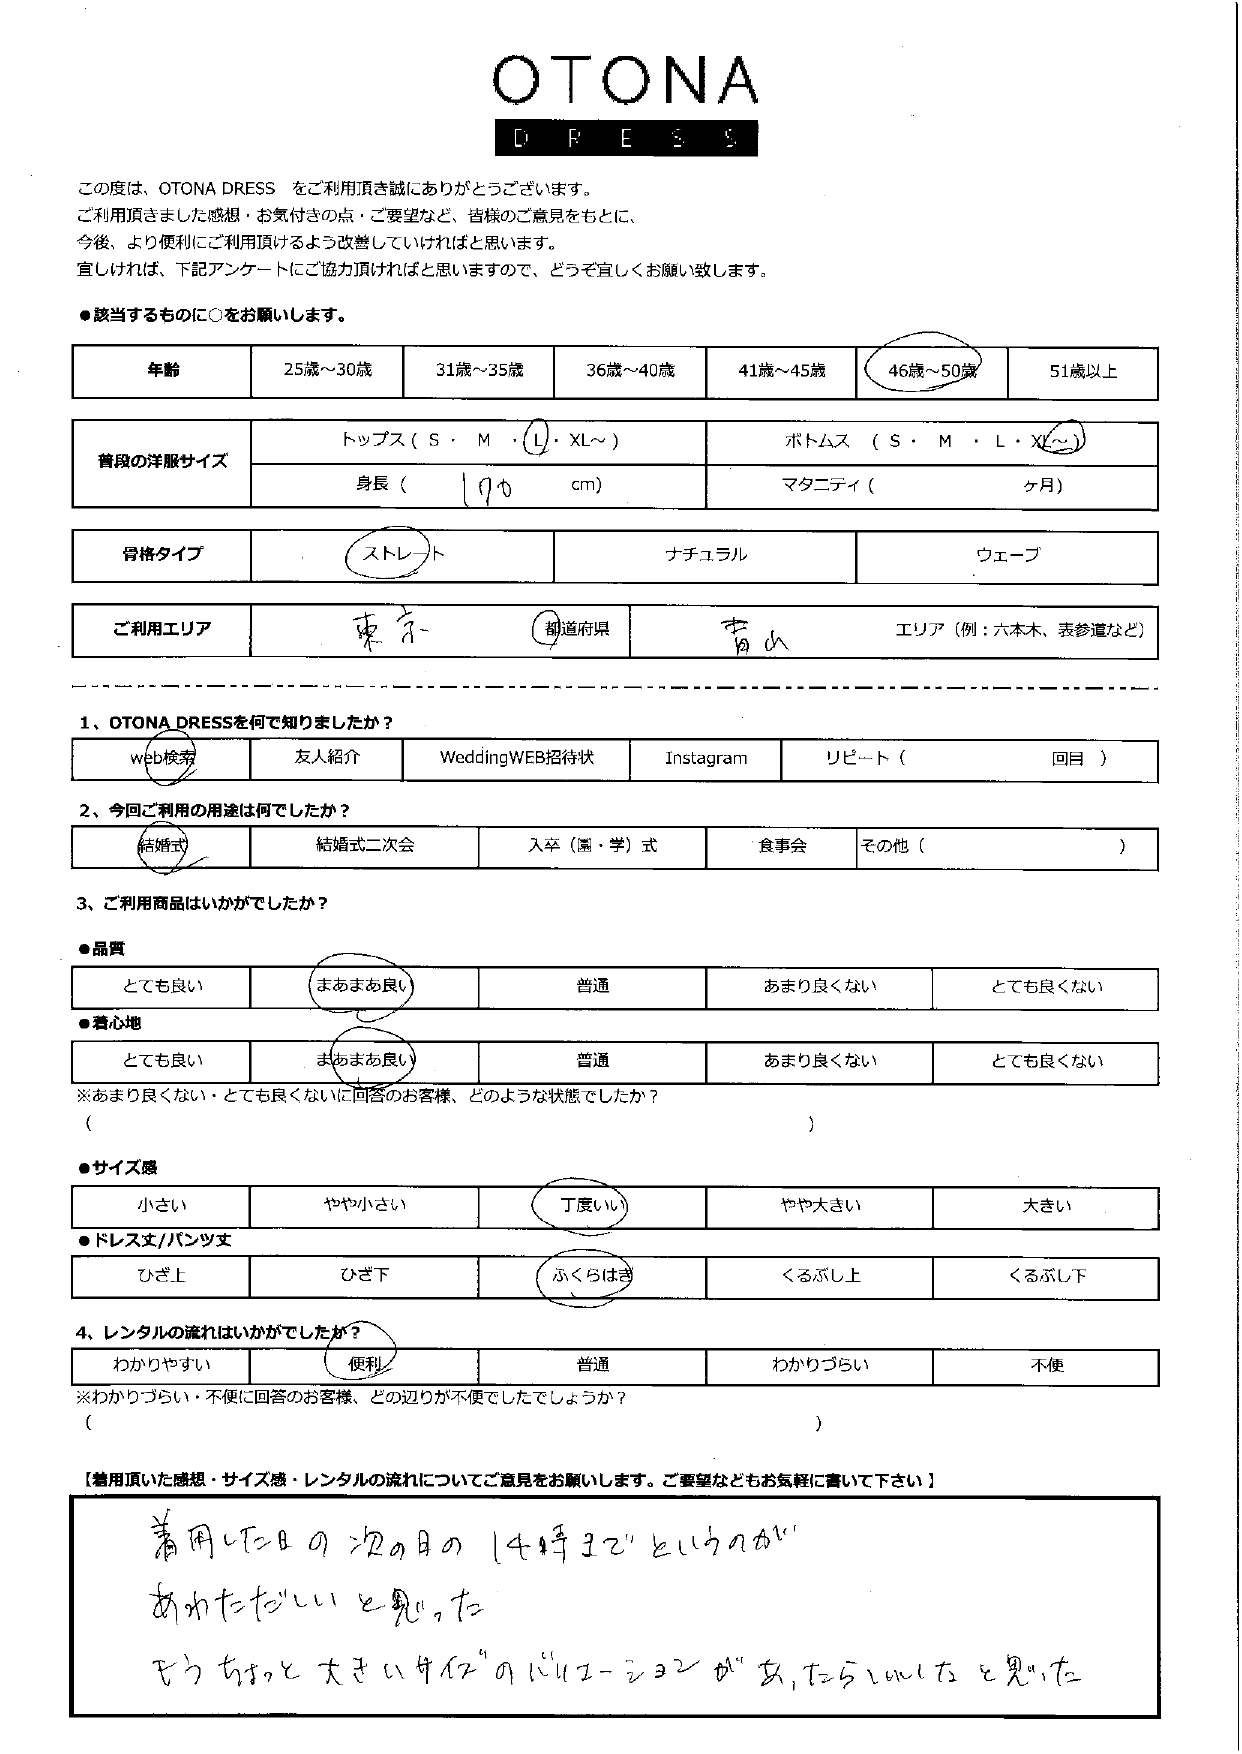 OTONA
DRESS
この度は、OTONA DRESS をご利用頂き誠にありがとうございます。
ご利用頂きました感想・お気付きの点・ご要望など、皆様のご意見をもとに、
今後、より便利にご利用頂けるよう改善していければと思います。
宜しければ、下記アンケートにご協力頂ければと思いますので、どうぞ宜しくお願い致します。
●該当するものに○をお願いします。
年齢 25歳～30歳 31歳～35歳 36歳～40歳 41歳～45歳 46歳～50歳 51歳以上
普段の洋服サイズ トップス ( S ・ M ・ L ・ XL～ ) ボトムス ( S ・ M ・ L ・ XL～ )
身長 ( 170 cm) マタニティ ( ヶ月)
骨格タイプ ストレート ナチュラル ウェーブ
ご利用エリア 東京 都道府県 青山 エリア（例：六本木、表参道など）
1、OTONA DRESSを何で知りましたか？
web検索 友人紹介 WeddingWEB招待状 Instagram リピート ( 回目 )
2、今回ご利用の用途は何でしたか？
結婚式 結婚式二次会 入卒（園・学）式 食事会 その他 ( )
3、ご利用商品はいかがでしたか？
●品質
とても良い まあまあ良い 普通 あまり良くない とても良くない
●着心地
とても良い まあまあ良い 普通 あまり良くない とても良くない
※あまり良くない・とても良くないに回答のお客様、どのような状態でしたか？
( )
●サイズ感
小さい やや小さい 丁度いい やや大きい 大きい
●ドレス丈/パンツ丈
ひざ上 ひざ下 ふくらはぎ くるぶし上 くるぶし下
4、レンタルの流れはいかがでしたか？
わかりやすい 便利 普通 わかりづらい 不便
※わかりづらい・不便に回答のお客様、どの辺りが不便でしたでしょうか？
( )
【着用頂いた感想・サイズ感・レンタルの流れについてご意見をお願いします。ご要望などもお気軽に書いて下さい】
着用した日の次の日の14時までというのが
あわただしいと思った
もうちょっと大きいサイズのバリエーションがあったら
と思った